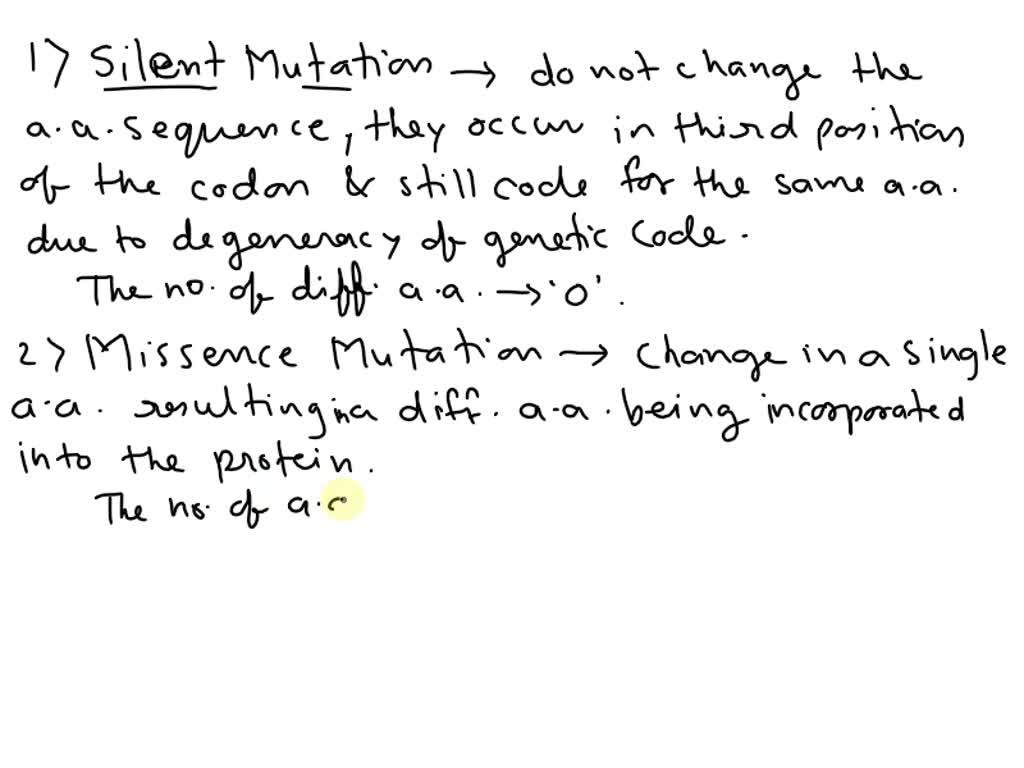 1> Silent Mutation → do not change the
a.a. sequence, they occur in third position
of the codon & still code for the same a.a.
due to degeneracy of genetic code.
The no. of diff. a.a. → '0'.
2> Missence Mutation → change in a single
a.a. resulting in a diff. a.a. being incorporated
into the protein.
The no. of a.c